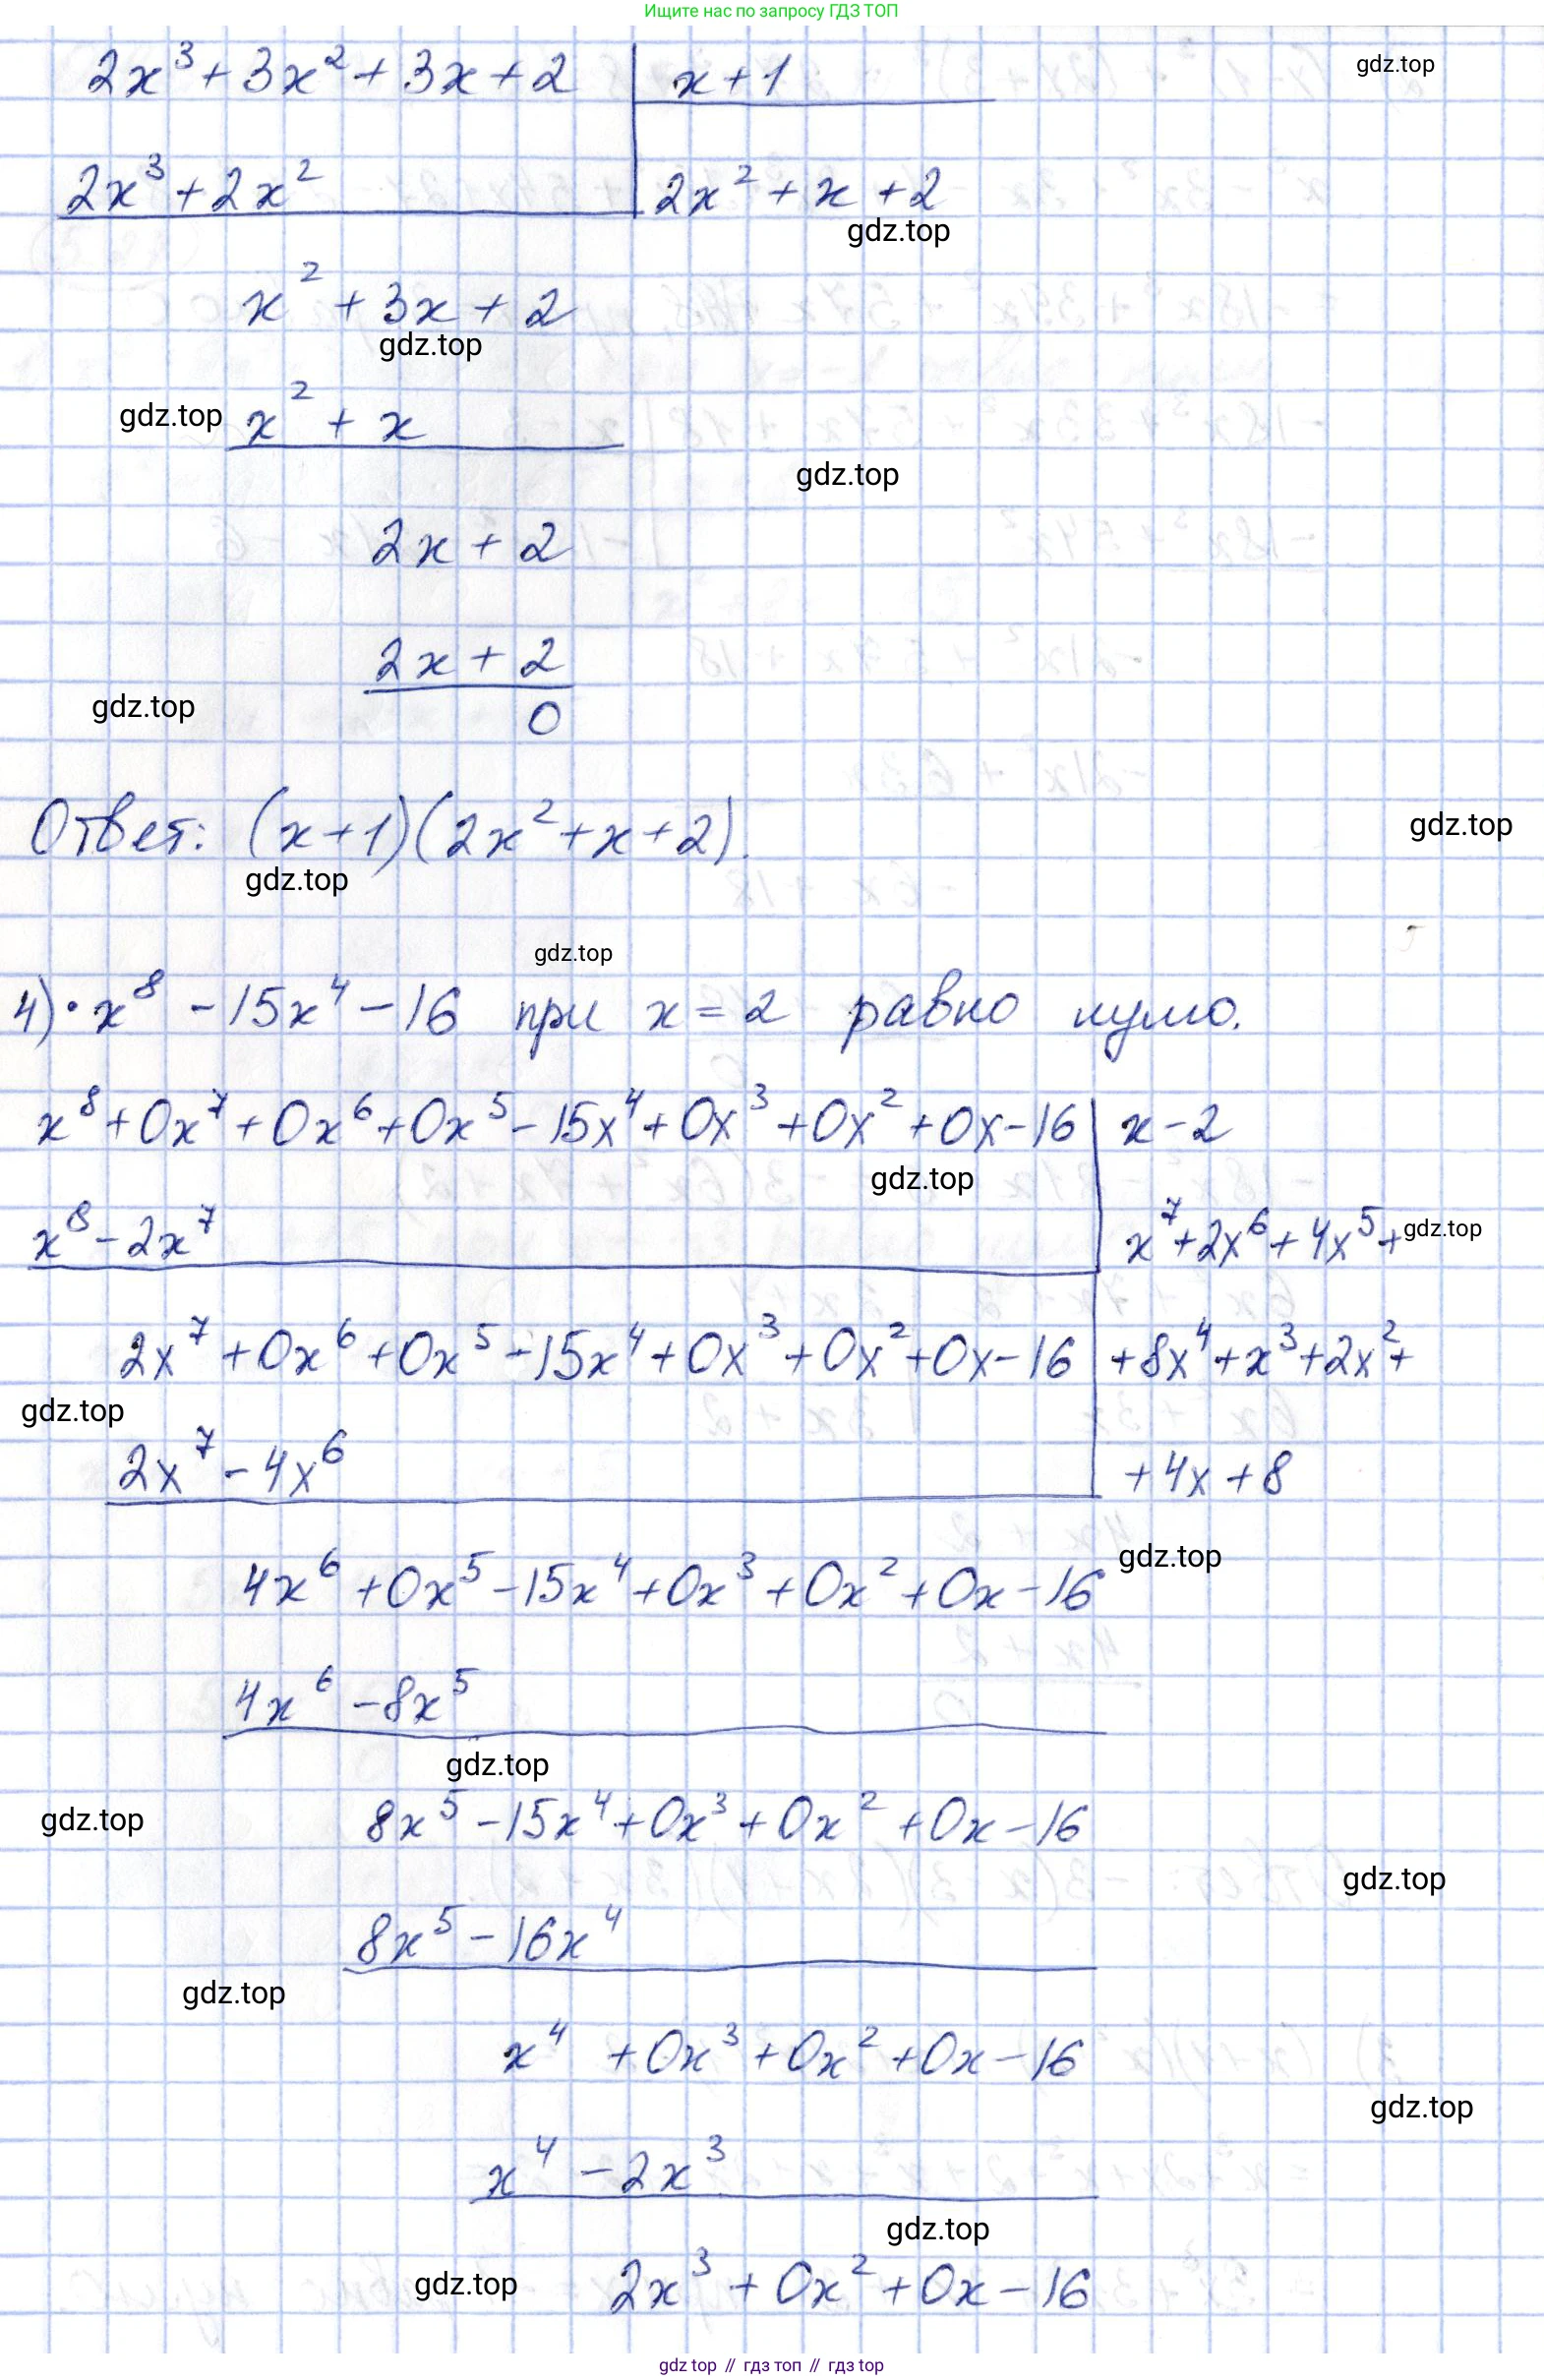 Ищите нас по запросу ГДЗ ТОП
2x³ + 3x² + 3x + 2 | x + 1
gdz.top
2x³ + 2x² | 2x² + x + 2
gdz.top
x² + 3x + 2
gdz.top
gdz.top
x² + x
gdz.top
2x + 2
2x + 2
gdz.top
0
Ответ: (x+1)(2x² + x + 2).
gdz.top
gdz.top
gdz.top
4) • x⁸ - 15x⁴ - 16 при x = 2 равно нулю.
x⁸ + 0x⁷ + 0x⁶ + 0x⁵ - 15x⁴ + 0x³ + 0x² + 0x - 16 | x - 2
gdz.top
x⁸ - 2x⁷ | x⁷ + 2x⁶ + 4x⁵ +
gdz.top
2x⁷ + 0x⁶ + 0x⁵ - 15x⁴ + 0x³ + 0x² + 0x - 16 | + 8x⁴ + x³ + 2x² +
gdz.top
2x⁷ - 4x⁶ | + 4x + 8
gdz.top
4x⁶ + 0x⁵ - 15x⁴ + 0x³ + 0x² + 0x - 16
4x⁶ - 8x⁵
gdz.top
gdz.top
8x⁵ - 15x⁴ + 0x³ + 0x² + 0x - 16
gdz.top
8x⁵ - 16x⁴
gdz.top
x⁴ + 0x³ + 0x² + 0x - 16
gdz.top
x⁴ - 2x³
gdz.top
gdz.top
2x³ + 0x² + 0x - 16
gdz top // гдз топ // гдз top